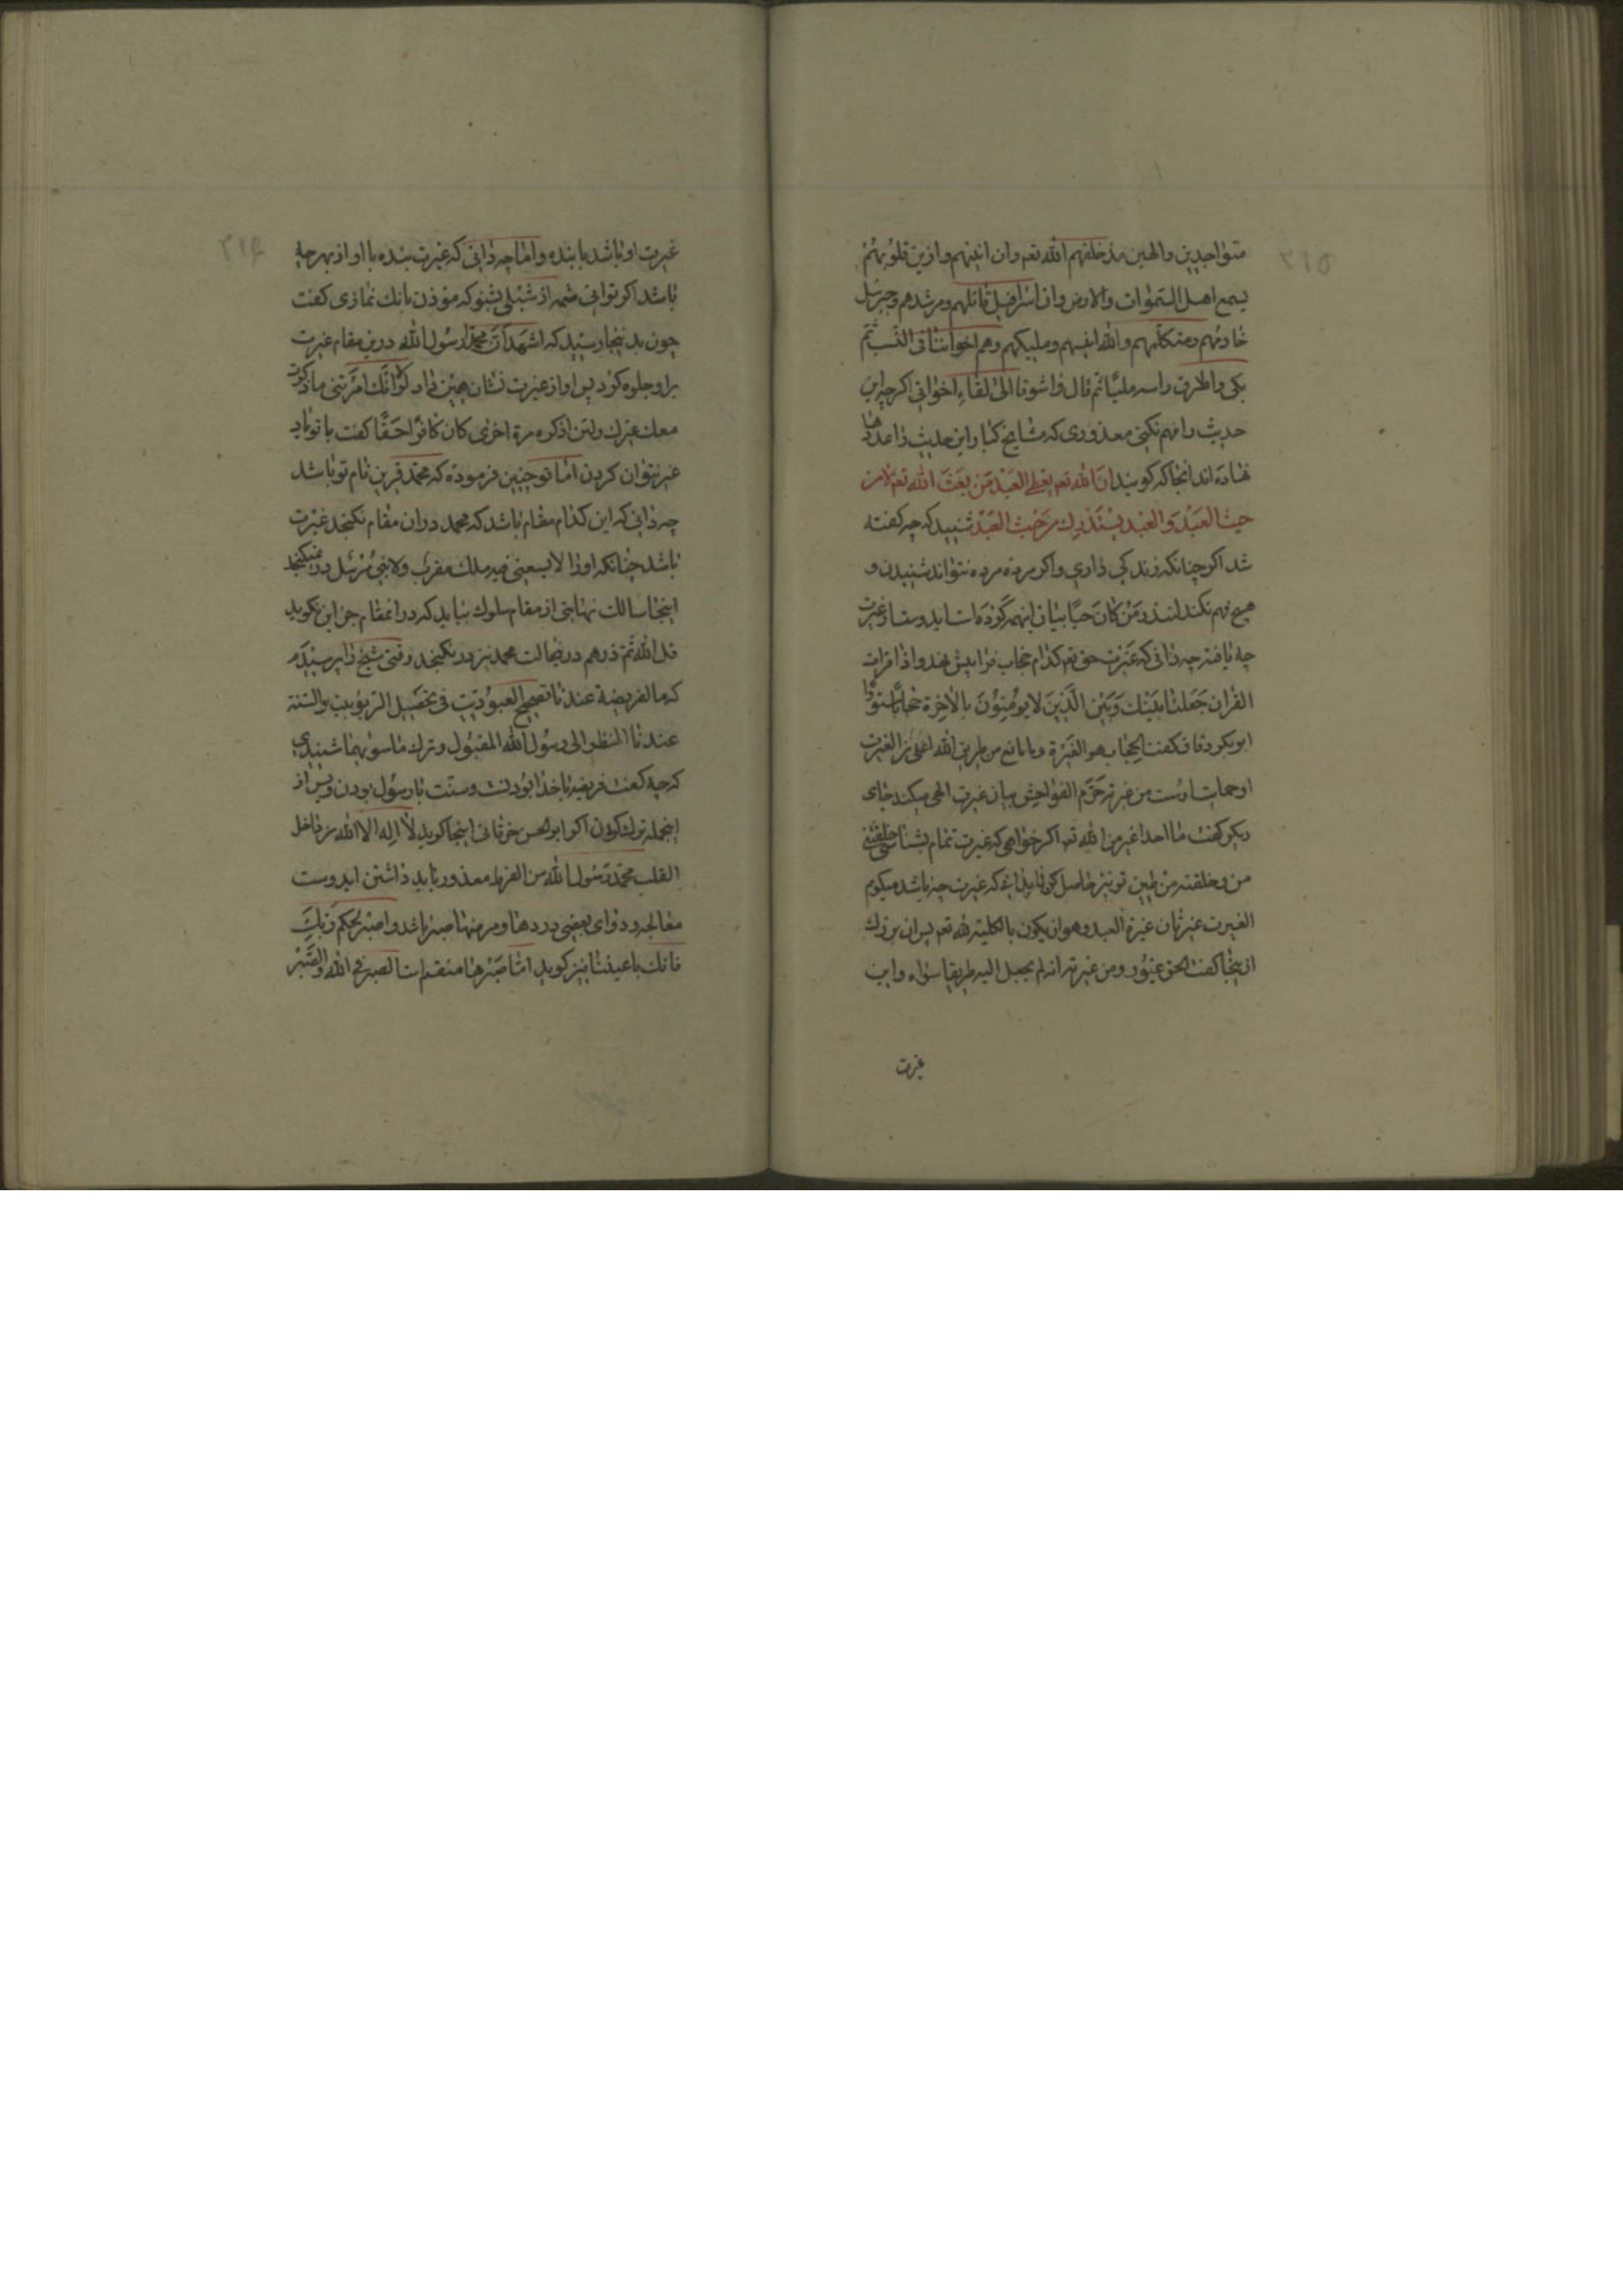 ٣١٥
متواجدین والهین مذ خلقهم الله تعه وان انینهم وازیز قلوبهم
یسمع اهل السموات والارض وان اسرافیل قائلهم ومرشدهم وجبرئیل
خادمهم ومتکلمهم والله انیسهم وملیکهم وهم اخواننا فی النسب ثم
بکی واطرق راسه ملیّا ثم قال واشوقا الی لقاء اخوانی اکرچه این
حدیث را فهم نکنی معذوری که مشایخ کبار این حدیث را عذرها
نهاده اند انجا که کویند ان الله تعه یعطی العبد من بعث الله تعه لامن
حیث العبد والعبد یستدرك من حیث العبد شنیدی که چه کفته
شد اکر چنانکه زندکی داری واکر مرده مرده نتواند شنیدن و
هیچ فهم نکند لینذر من کان حیّا بیان اینهمه کرده است اید وست از غیرت
چه یافته چه دانی که غیرت حق تعه کدام حجاب فرا پیش نهد واذا قرات
القران جعلنا بینك وبین الذین لا یومنون بالاخرة حجابا مستورا
ابوبکر دقاق کفت الحجاب هو الغیرة وما مانع من طریق الله اعلی من الغیرت
او حجابست من غیرته حرم الفواحش بیان غیرت الهی میکند جای
دیکر کفت ما احد اغیر من الله تعه اکر خواهی که غیرت تمام بشناسی خلقتنی
من وخلقته من طین تو نیز حاصل کن تا بدانی که غیرت چه باشد میکوم
الغیرت غیرتان غیرة العبد وهو ان یکون بالکلیته لله تعه پس ان بزرك
از اینجا کفت الحق غیور ومن غیرته انه لم یجعل الیه طریقا سواه واین
غیرت
٣١٦
غیرت او باشد با بنده واما چه دانی که غیرت بنده با او از بهر چه
باشد اکر توانی شمه از شبلی بشنو که مؤذن بانك نمازی کفت
چون بدینجا رسید که اشهد ان محمدا رسول الله درین مقام غیرت
براو جلوه کرد پس او از غیرت نشان همین داد لولا انك امرتنی ما ذکرت
معك غیرك ولئن اذکره مرة اخری کان کافرا حقّا کفت با تو یاد
غیر نتوان کردن اما تو چنین فرمودۀ که محمد قرین نام تو باشد
چه دانی که این کدام مقام باشد که محمد دران مقام نکنجد غیرت
باشد چنانکه او را لا یسعنی فیه ملك مقرب ولا نبی مرسل در نمیکنجد
اینجا سالك نهایتی از مقام سلوك بیابد که درانمقام جز این نکوید
قل الله ثم ذرهم درینحالت محمد نیز در نکنجد وقتی شیخ را پرسیدم
که ما الفریضة عندنا تصحیح العبودیّت فی تحصیل الربوبیت والسنة
عندنا النظر الی رسول الله المقبول وترك ما سویهما شنیدی
که چه کفت فریضه با خدا بودنست وسنت با رسول بودن وپس از
اینجمله ترك کردن اکر ابو الحسن خرقانی اینجا کوید لا اله الا الله من داخل
القلب محمد رسول الله من القرط معذور باید داشتن ایدوست
معالجه ودوای بعضی دردها ومرضها صبر باشد واصبر لحکم ربك
فانك باعیننا نیز کوید اما صبرها منقسم است الصبر فی الله والصبر